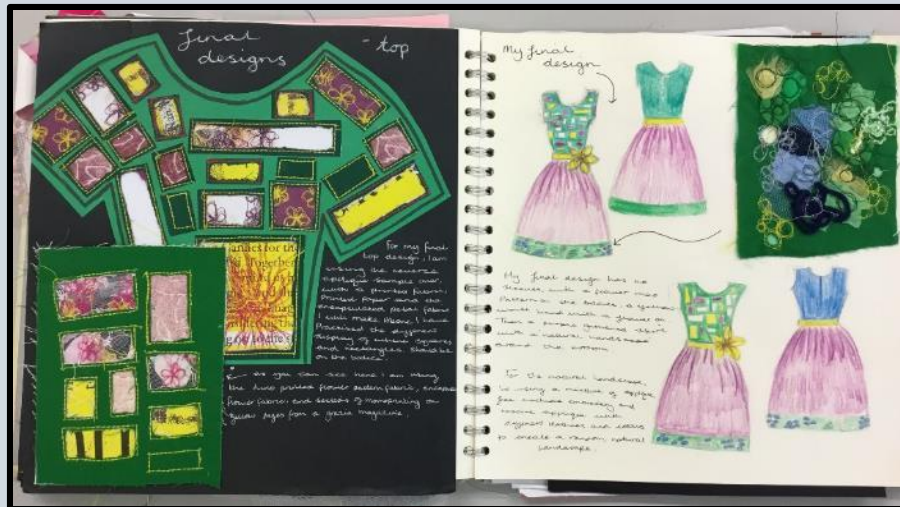 final
designs
- top
For my final
top design, I am
using the reverse
applique sample over,
with a printed fabric,
printed paper and the
encapsulated petal fabric
I will make above. I have
practised the different
display of squares
and rectangles should be
on the bodice.
As you can see here I am using
the lino printed flower pattern fabric,
flower fabric and sections of monoprinting on
yellow pages from a magazine.
Together
My final
design
My final design has no
sleeves, with a flower
pattern on the bodice, a yellow
waist band with a flower on.
Then a purple skirt,
with a natural landscape
around the bottom.
For the natural landscape,
is using a mixture of applique,
free machine embroidery and
reverse applique with
different and
to create a random, natural
landscape.